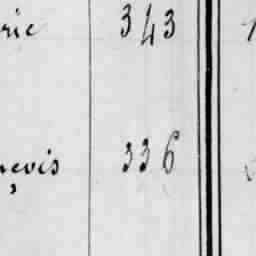 ric 343
nevis 336